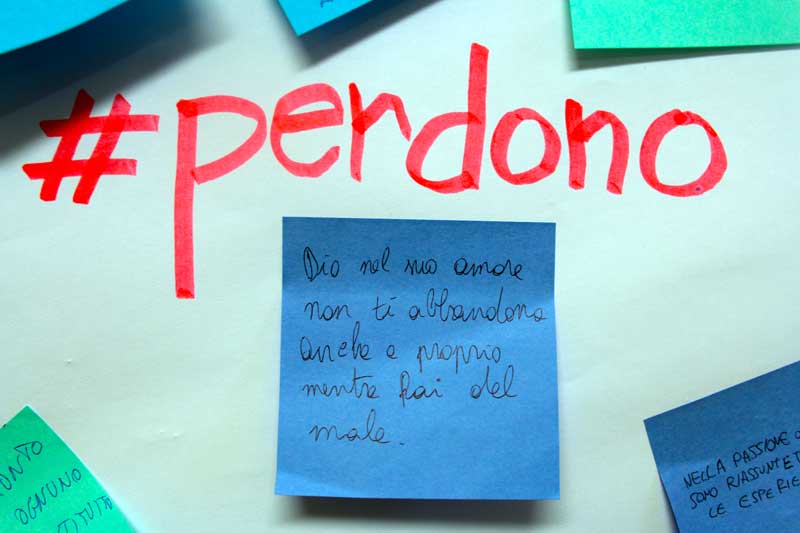 #perdono
Dio nel suo amore
non ti abbandona
anche e proprio
mentre fai del
male.
OGNUNO
NELLA PASSIONE
SONO RIASSUNTE
LE ESPERIE